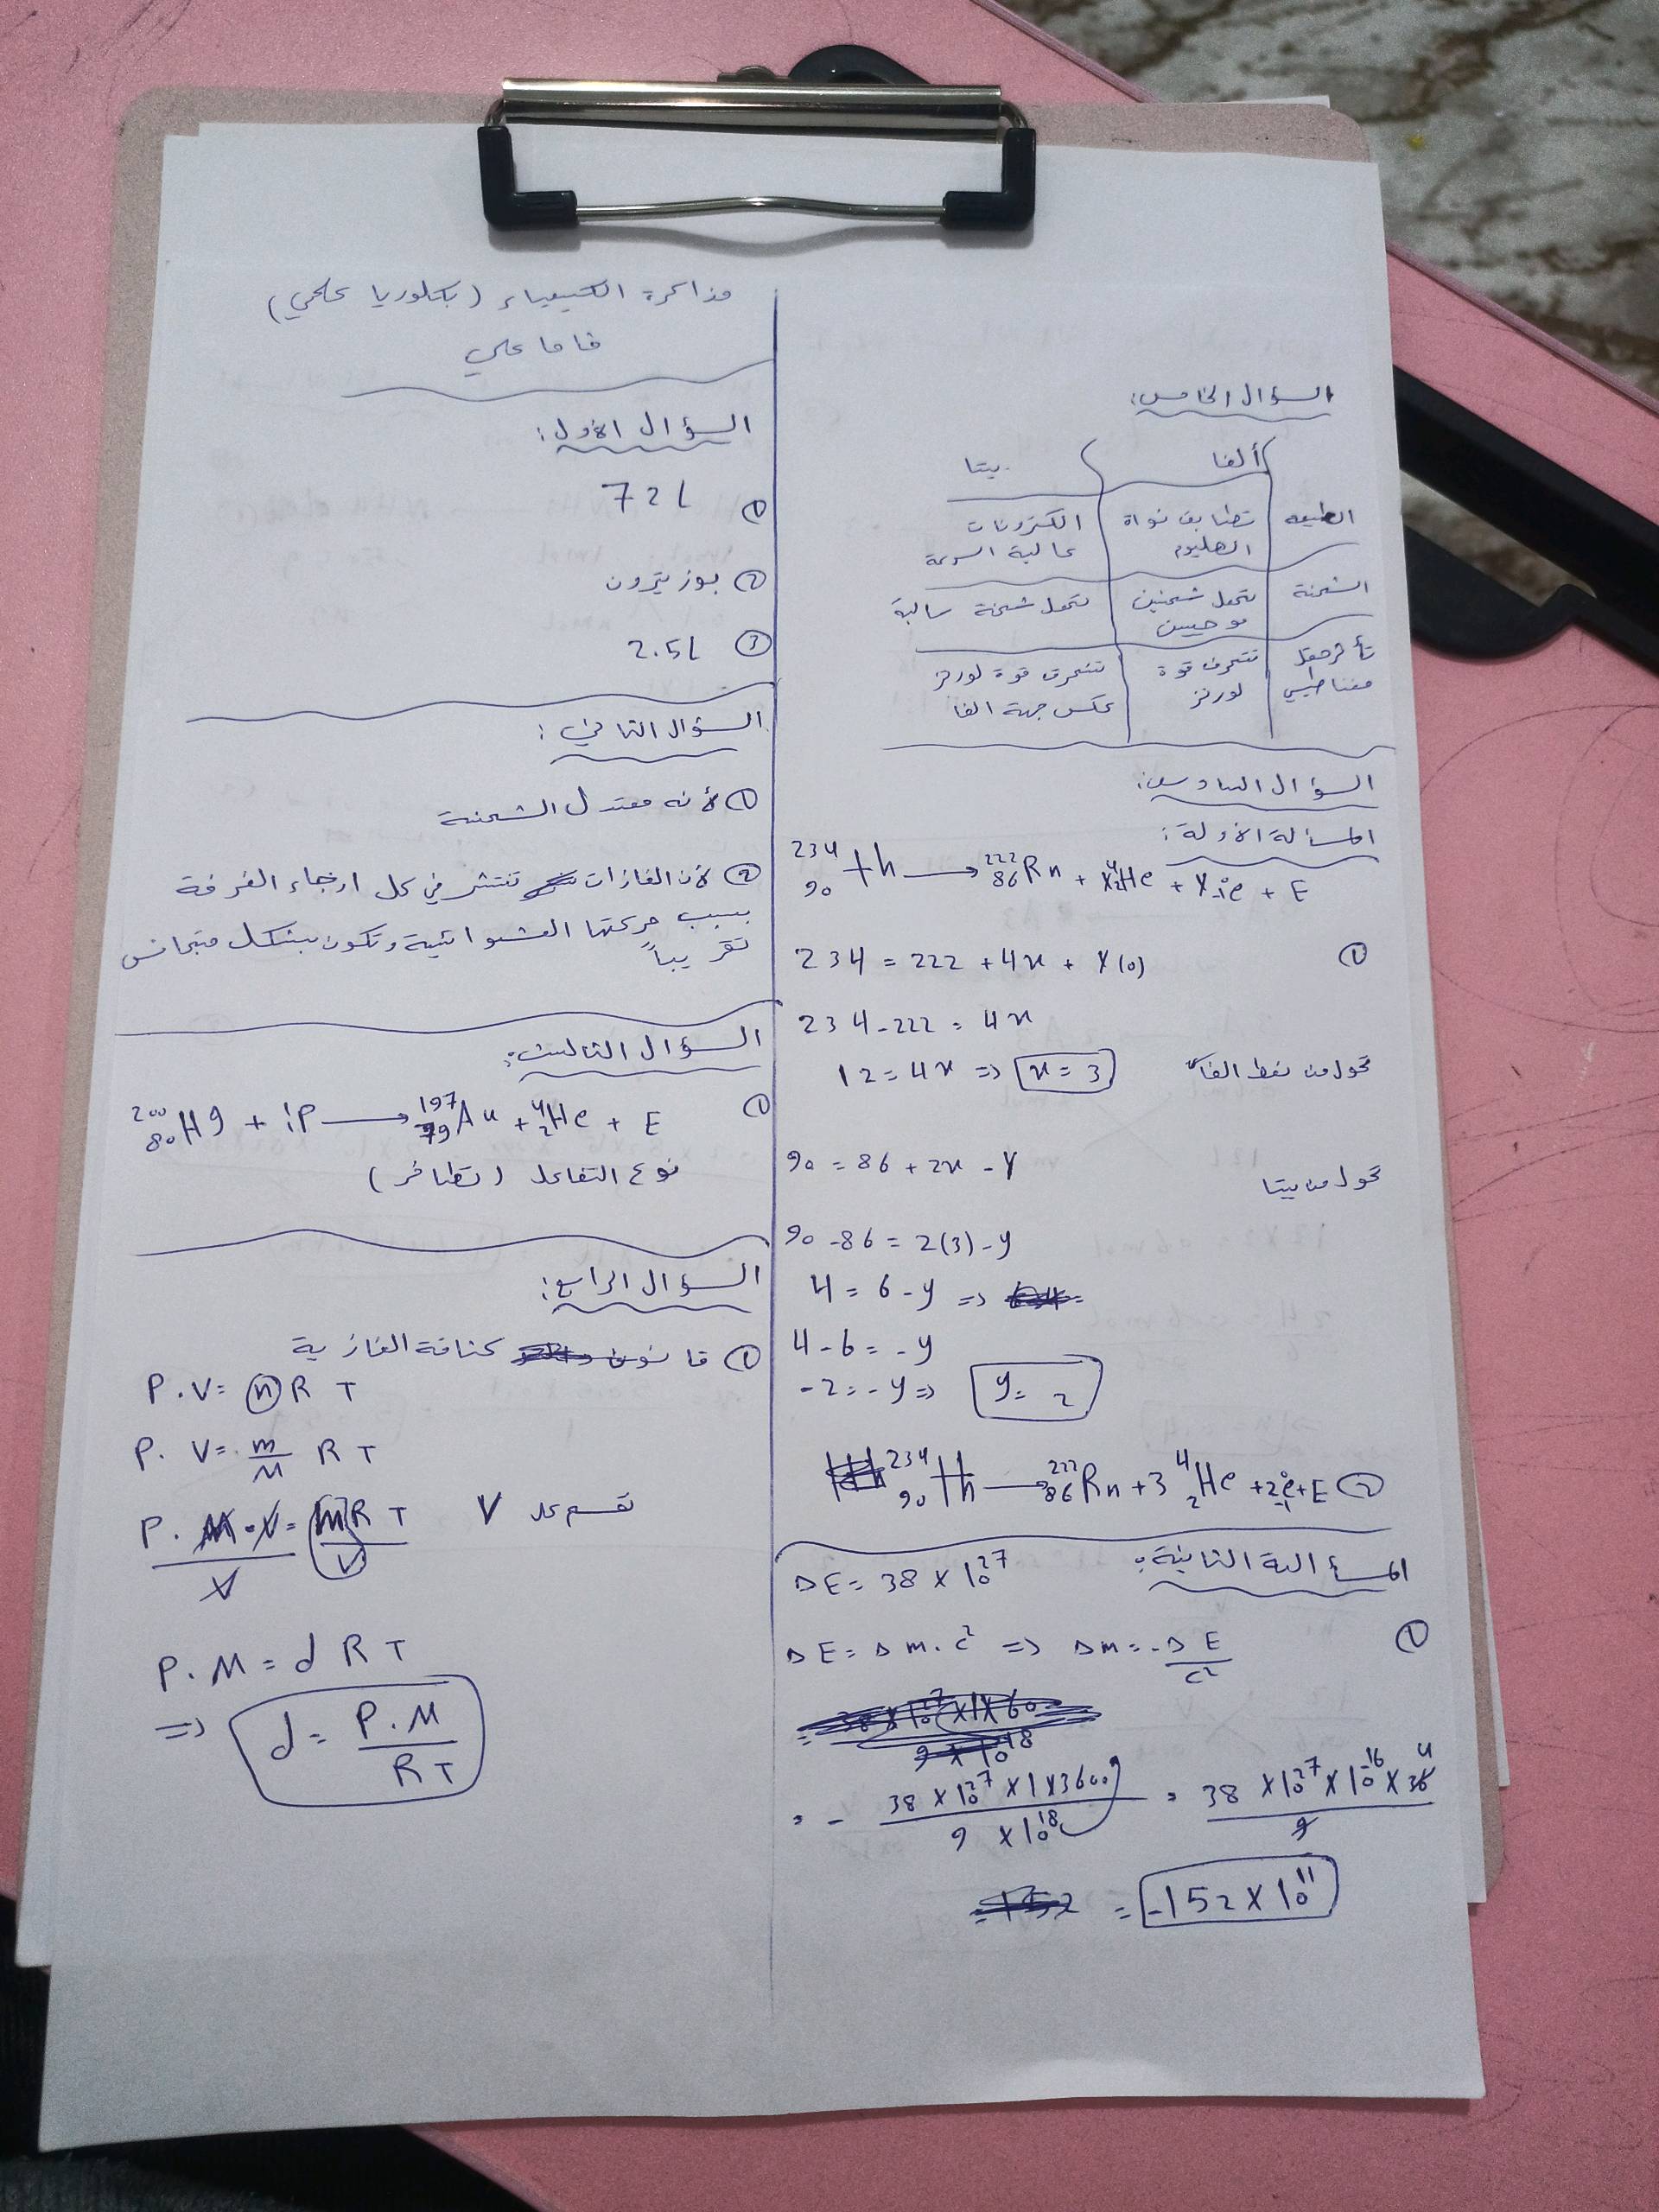 مذاكرة الكيمياء (بكلوريا علمي)
السؤال الأول:
① 72 L
② بوزيترون
③ 2.5 L
السؤال الثاني:
① لأنه معتدل الشحنة
② لأن الغازات تنتشر في كل ارجاء الغرفة
بسبب حركتها العشوائية وتكون بشكل متجانس
تقريباً
السؤال الثالث:
① ²⁰⁰₈₀Hg + ¹₁P → ¹⁹⁷₇₉Au + ⁴₂He + E
نوع التفاعل (تطافر)
السؤال الرابع:
① قانون كثافة الغازية
P.V = n R T
P. V = m/M R T
P. M.V / V = m R T / V نقسم على V
P.M = d R T
=> d = P.M / R T
السؤال الخامس:
ألفا بيتا
الطبيعة تطابق نواة الهليوم الكترونات عالية السرعة
الشحنة تحمل شحنتين موجبتين تحمل شحنة سالبة
تأثر حقل مغناطيسي تنحرف قوة لورنز تنحرف قوة لورنز عكس جهة الفا
السؤال السادس:
المسألة الأولة:
²³⁴₉₀Th → ²²²₈₆Rn + x ⁴₂He + y ⁰₋₁e + E
① 234 = 222 + 4x + y(0)
234 - 222 = 4x
12 = 4x => x = 3 تحول من نمط الفا
90 = 86 + 2x - y
تحول من بيتا
90 - 86 = 2(3) - y
4 = 6 - y =>
4 - 6 = - y
- 2 = - y => y = 2
② ²³⁴₉₀Th → ²²²₈₆Rn + 3 ⁴₂He + 2 ⁰₋₁e + E
المسألة الثانية:
ΔE = 38 × 10²⁷
① ΔE = Δm . c² => Δm = - ΔE / c²
= - 38 × 10²⁷ × 1 × 3600 / 9 × 10¹⁸ = 38 × 10²⁷ × 10⁻¹⁶ × 36 / 9
= -152 × 10¹¹